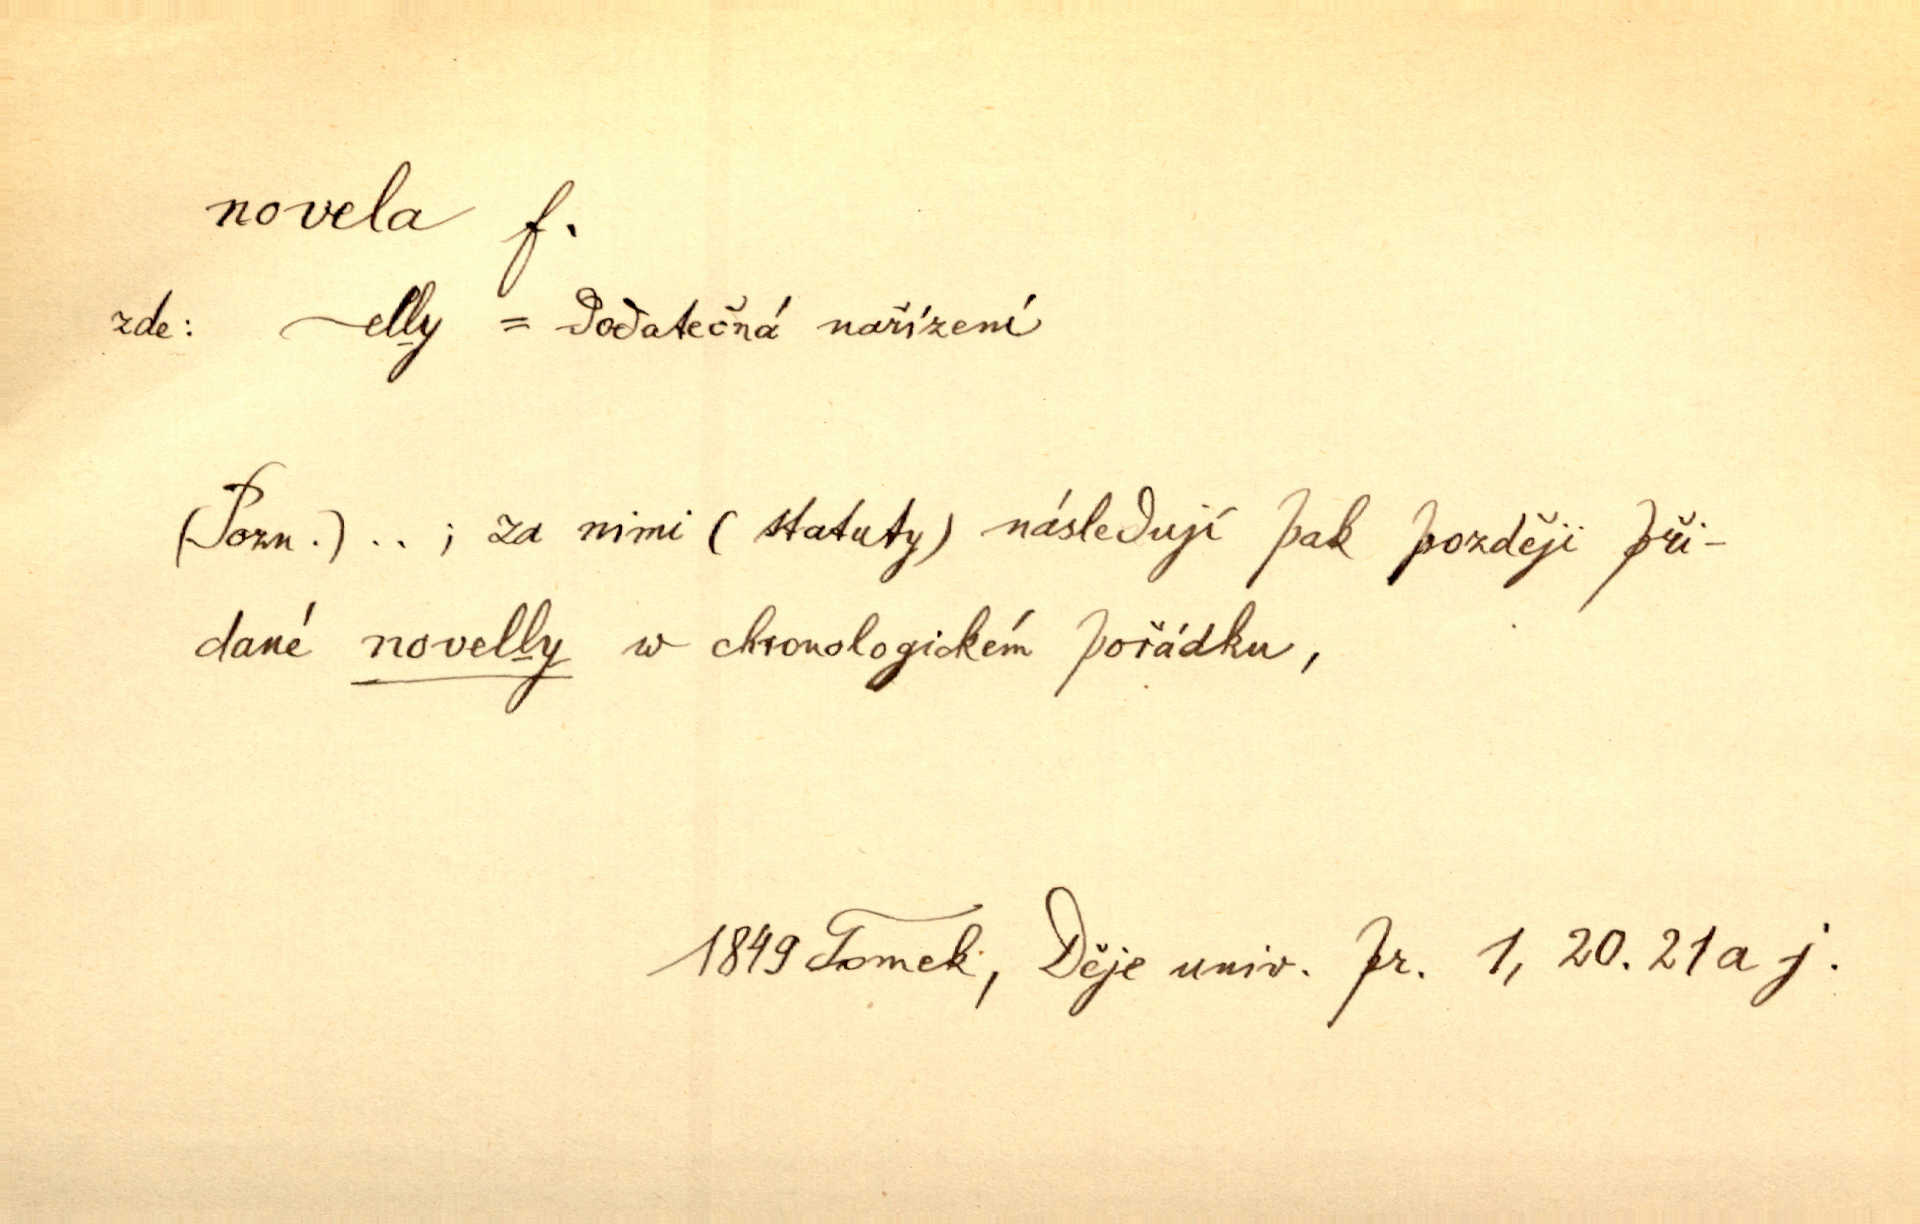 novela f.
zde: ~elly = Dodatečná nařízení
(Pozn.) .. ; za nimi (statuty) následují pak později při-
dané novelly w chronologickém pořádku,
1849 Tomek, Děje univ. pr. 1, 20. 21 a j.